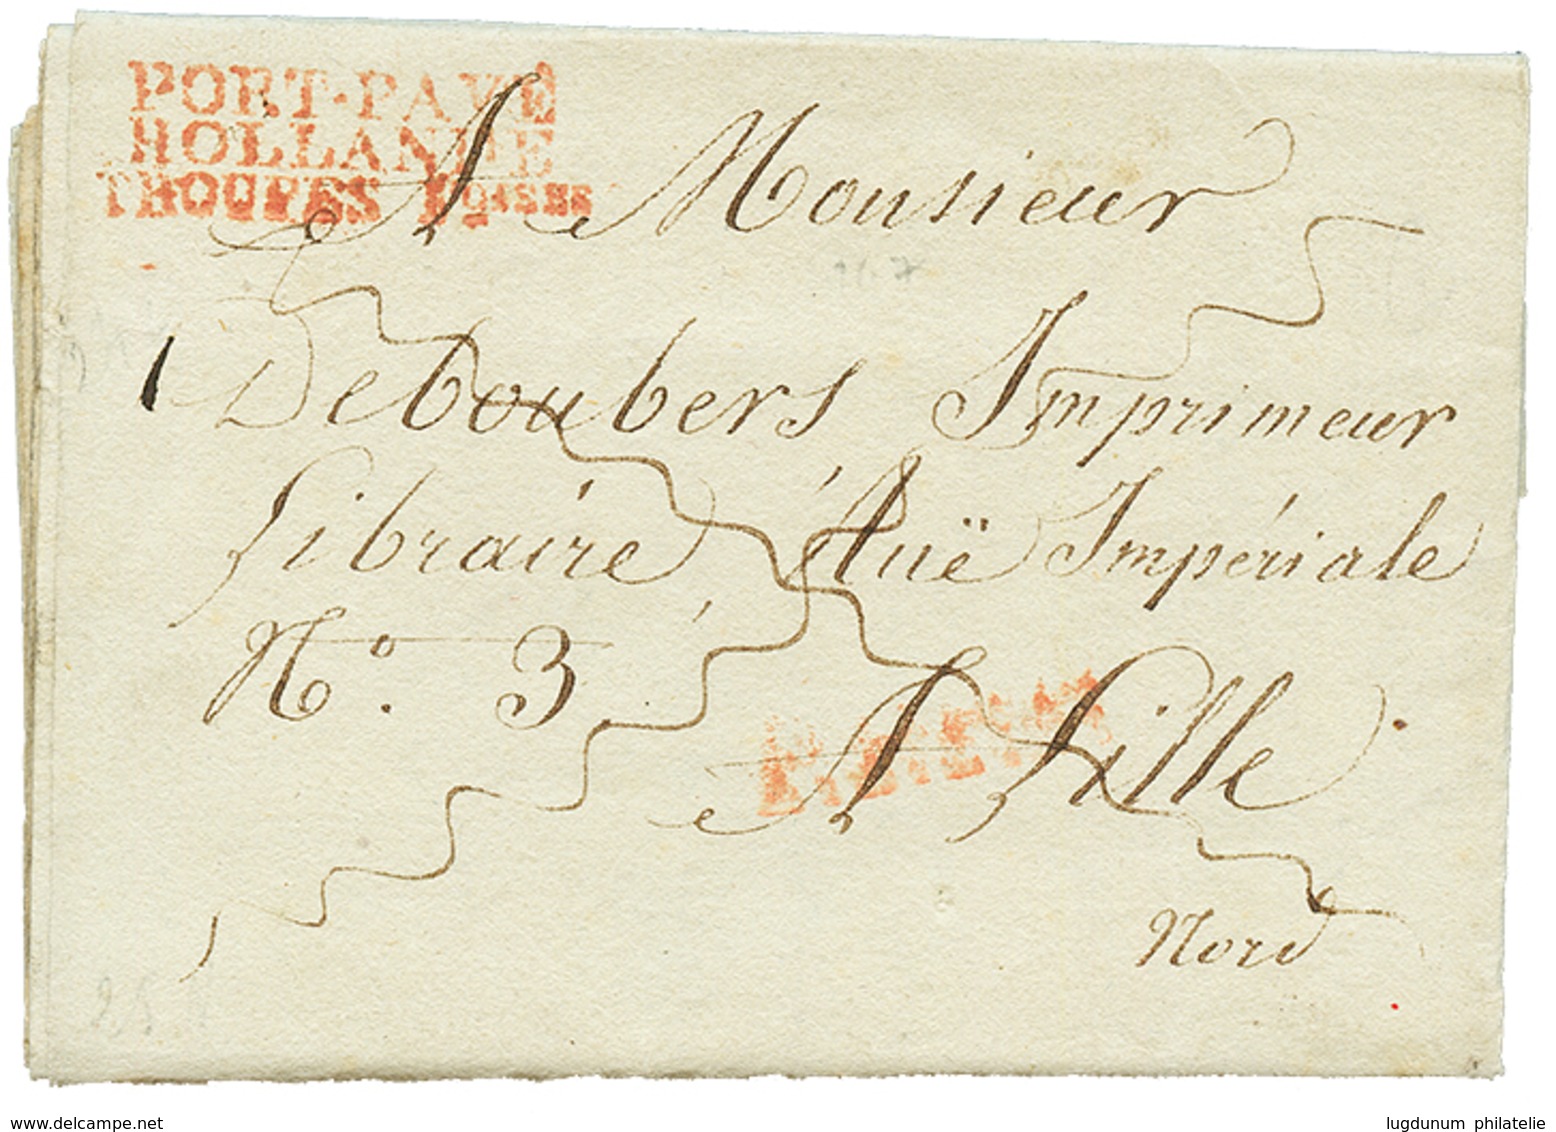 PORT-PAYÉ
HOLLANDE
TROUPES Fçaises
A Monsieur
Deboubers Imprimeur
Libraire Ruë Impériale
N.º 3.
A Lille
Nord
www.delcampe.net
lugdunum philatelie